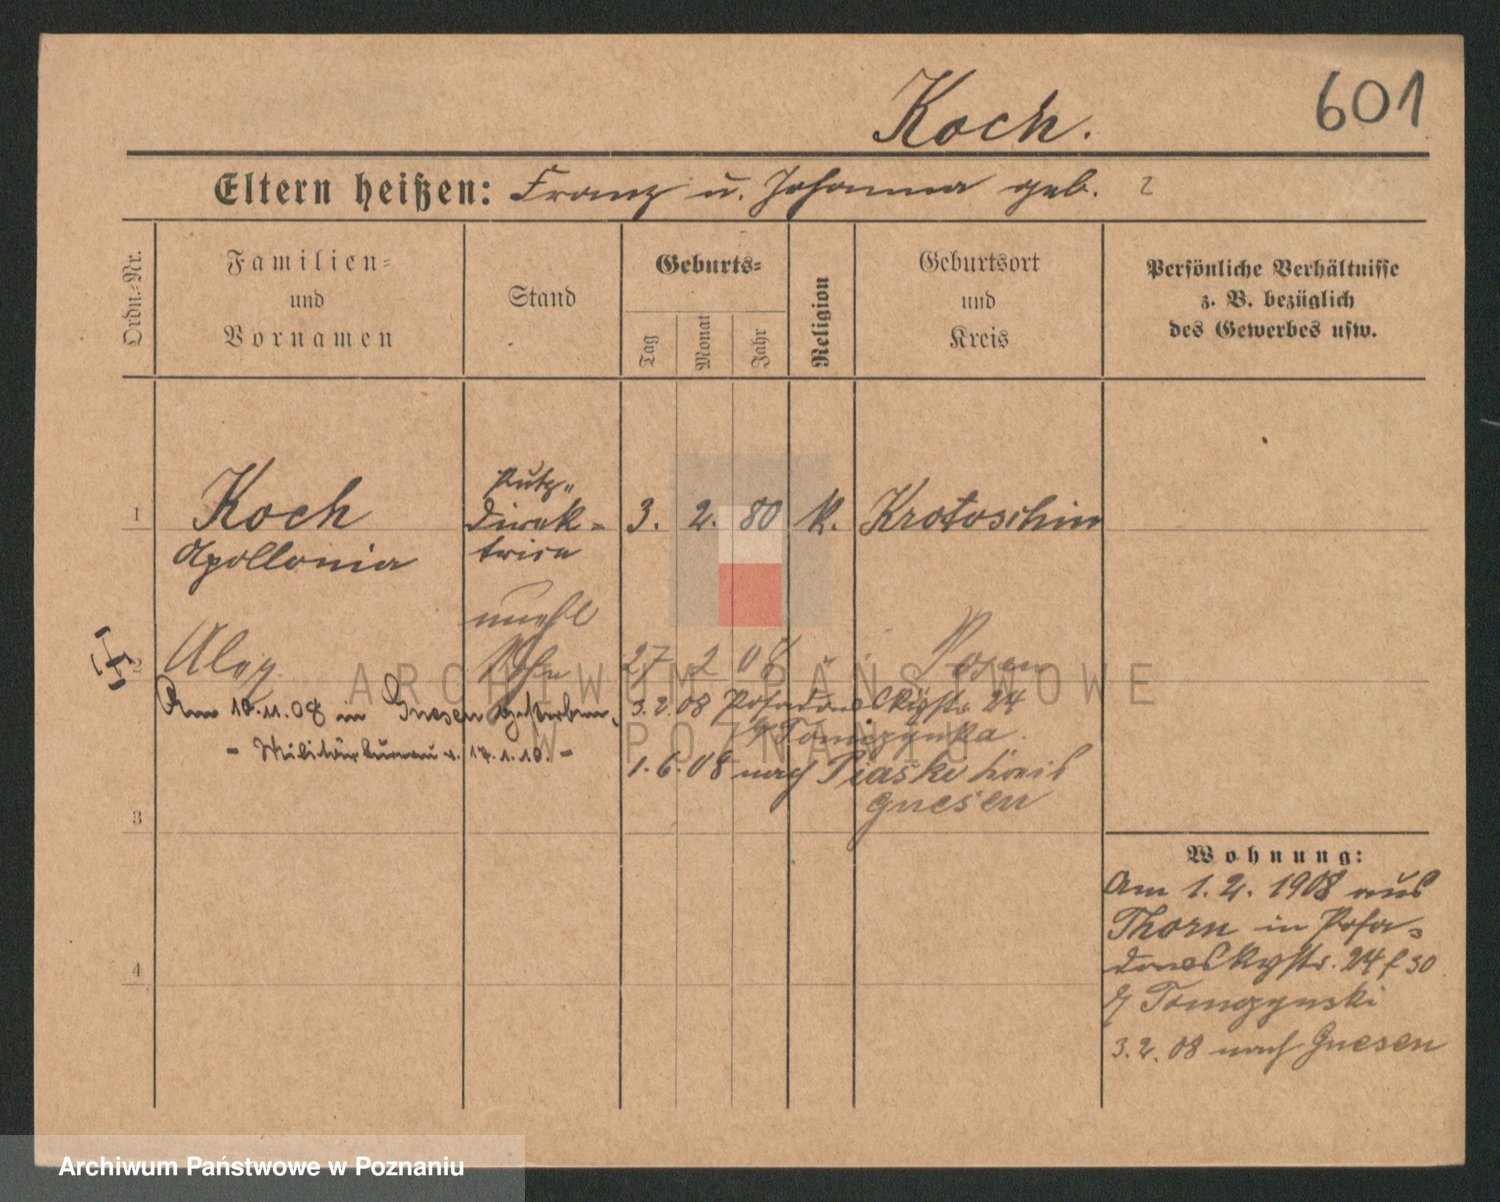 601
Koch.
Eltern heißen: Franz u. Johanna geb. ?
Ordn.-Nr.
Familien-
und
Vornamen
Stand
Geburts-
Tag
Monat
Jahr
Religion
Geburtsort
und
Kreis
Persönliche Verhältnisse
z. B. bezüglich
des Gewerbes usw.
1
Koch
Apollonia
Putz-
Direk-
trice
3. 2. 80 K. Krotoschin
unehl
2
Sohn 27 2 08 Posen
Am 10.11.08 in Gnesen gestorben,
- Militärbureau v. 17.1.10. -
3.2.08 24
1.6.08 nach Piaski Kreis
Gnesen
3
4
Wohnung:
Am 1. 2. 1908 aus
Thorn in Posa-
24 30
Tomczynski
3.2.08 nach Gnesen
ARCHIWUM PAŃSTWOWE
W POZNANIU
Archiwum Państwowe w Poznaniu